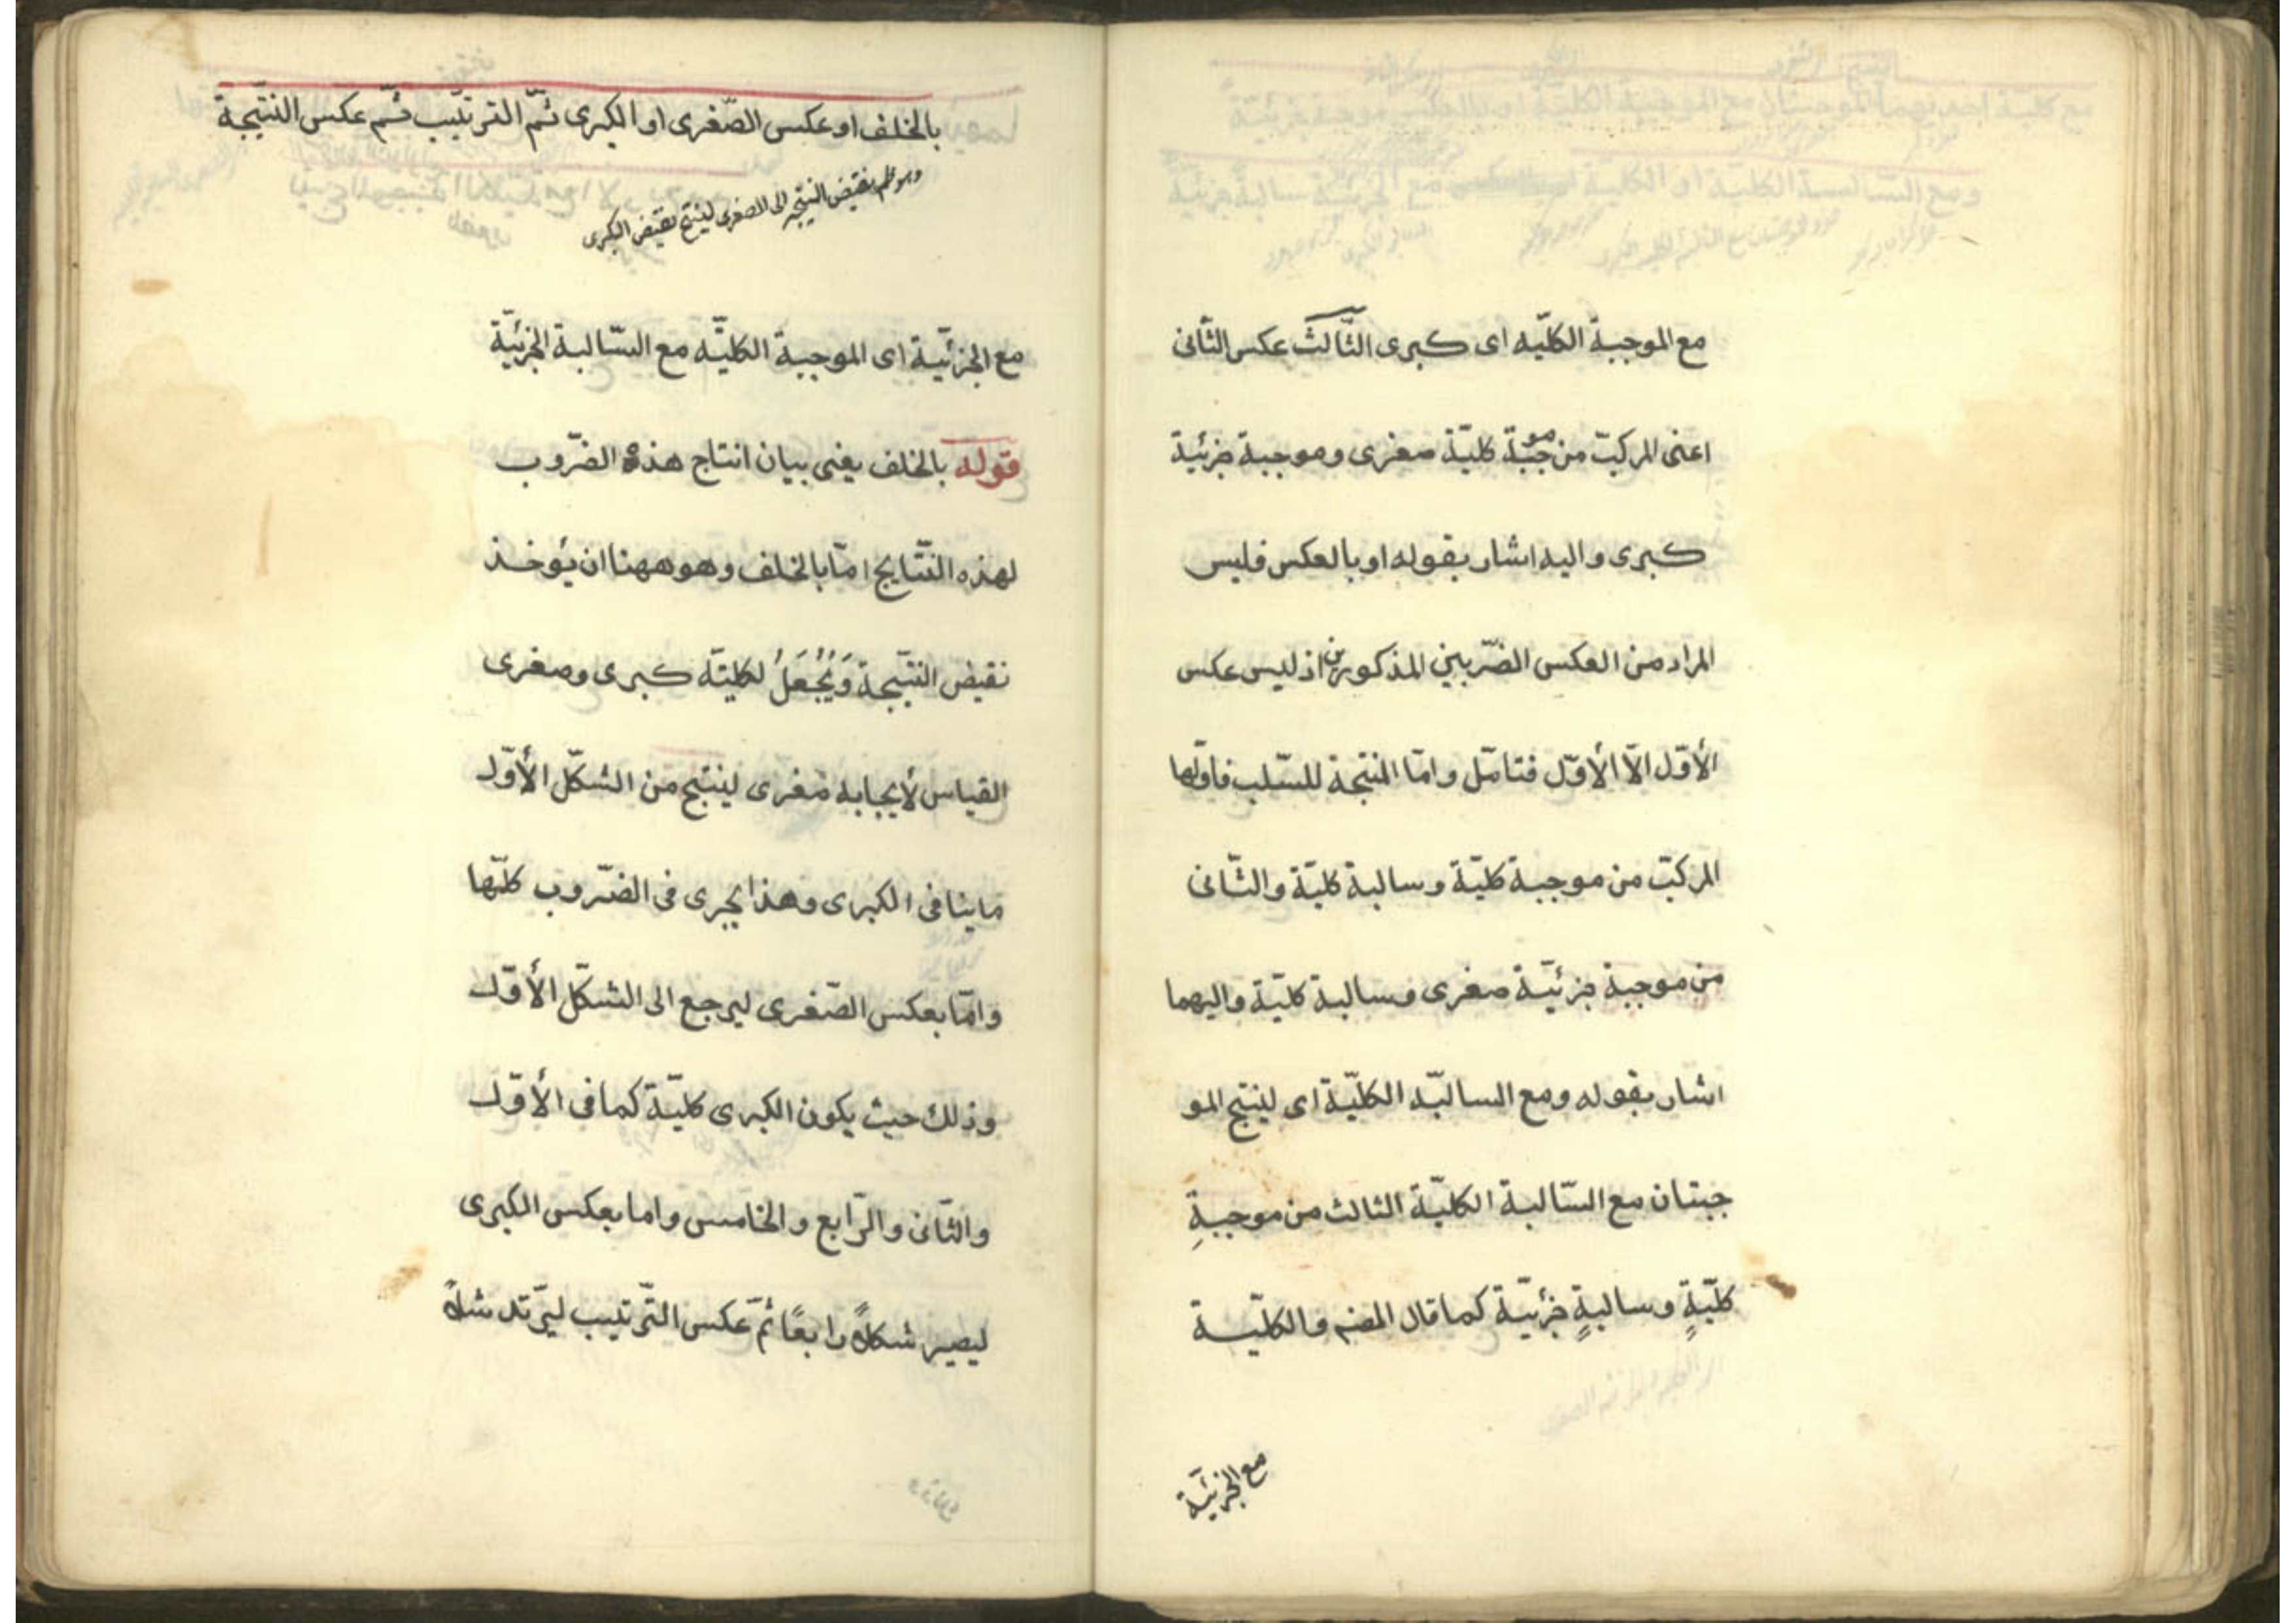 مع الموجبة الكليّه اى كبرى الثّالث عكس الثّانى
اعنى المركبّ من موجبّة كليّة صغرى وموجبة جزئية
كبرى واليه اشار بقوله او بالعكس فليس
المراد من العكس الضّربين المذكورين اذ ليس عكس
الأوّل الاّ الأوّل فتامّل وامّا المنتجة للسّلب فاوّلها
المركبّ من موجبة كليّة وسالبة كليّة والثّانى
من موجبة جزئيّة صغرى وسالبة كليّة واليهما
اشار بقوله ومع السالبّه الكليّة اى لينتج المو
جبتان مع السّالبة الكليّة الثالث من موجبةِ
كليّةٍ وسالبةٍ جزئيّة كما قال المصنم والكليّة
مع الجزئيّة
بالخلف او عكس الصّغرى او الكبرى ثمّ الترتيّب ثمّ عكس النتيّجة
وهو ضم نقيض النتيجه الى الصغرى لينتج نقيض الكبرى
مع الجزئيّة اى الموجبة الكليّه مع السّالبة الجزئيّة
قوله بالخلف يغنى بيان انتاج هذه الضّروب
لهذه النتّايج امّا بالخلف وهو ههنا ان يؤخذ
نقيض النتيّجة وَيُجْعَلُ لكليتّه كبرى وصغرى
القياس لأيجابه صغرى لينتج من الشكّل الأوّل
ما ينافى الكبرى وهذا يجرى فى الضّروب كلّها
وامّا بعكس الصّغرى ليرجع الى الشكّل الأوّل
وذلك حيث يكون الكبرى كليّة كما فى الأوّل
والثّانى والرّابع والخامس واما بعكس الكبرى
ليصير شكلاً رابعًا ثمّ عكس التّرتيب ليرّتد شلاً